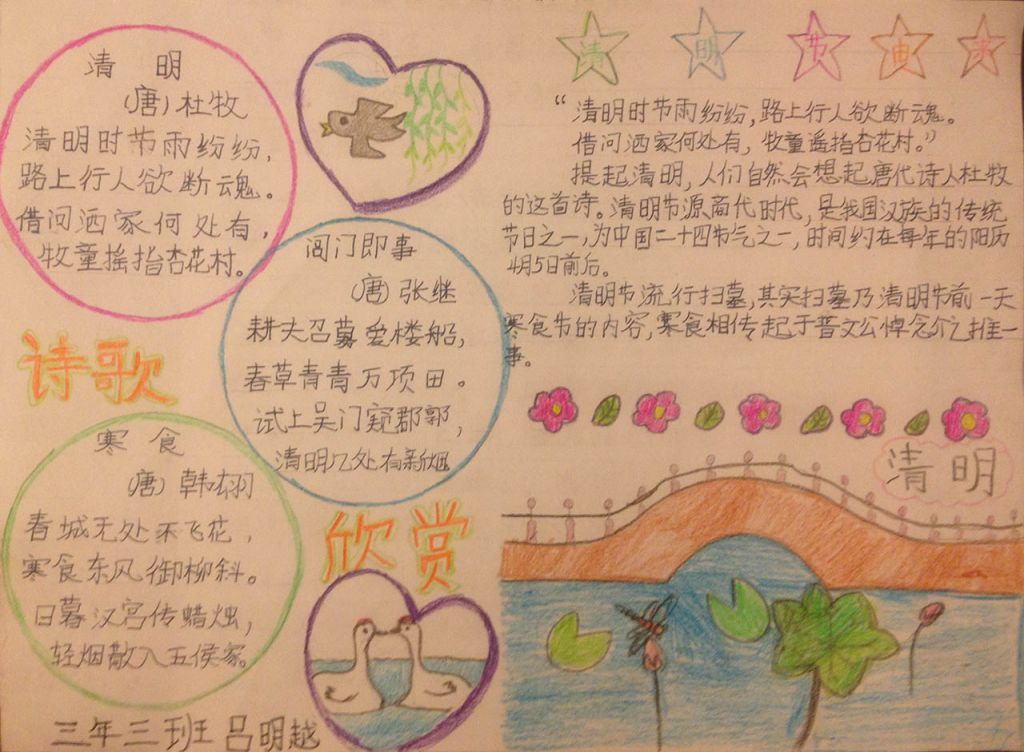 清 明
(唐)杜牧
清明时节雨纷纷,
路上行人欲断魂。
借问洒家何处有,
牧童摇指杏花村。
阊门即事
(唐)张继
耕夫召募爱楼船,
春草青青万项田。
试上吴门窥郡郭,
清明几处有新烟
诗歌
寒 食
(唐) 韩翃
春城无处不飞花,
寒食东风御柳斜。
日暮汉宫传蜡烛,
轻烟散入五侯家。
欣赏
三年三班 吕明越
清 明 节 由 来
“清明时节雨纷纷,路上行人欲断魂。
借问洒家何处有,牧童遥指杏花村。”
提起清明,人们自然会想起唐代诗人杜牧
的这首诗。清明节源商代时代,是我国汉族的传统
节日之一,为中国二十四节气之一,时间约在每年的阳历
4月5日前后。
清明节流行扫墓,其实扫墓乃清明节前一天
寒食节的内容,寒食相传起于晋文公悼念介之推一
事。
清明